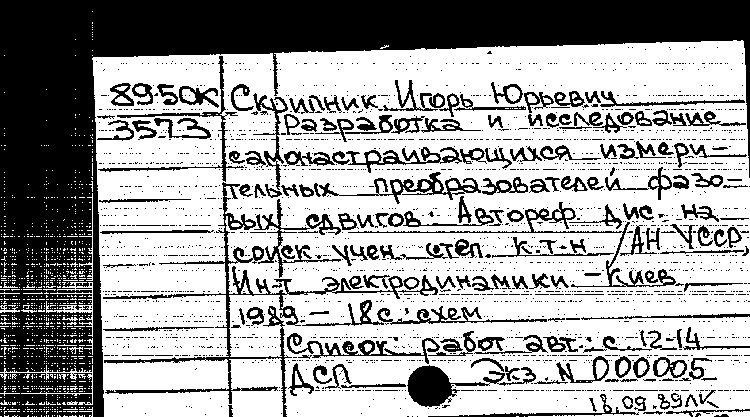 89-50К Скрипник Игорь Юрьевич
3573 Разработка и исследование
самонастраивающихся измери-
тельных преобразователей фазо-
вых сдвигов. Автореф. дис. на
соиск. учен. степ. к.т.н /АН УССР,
Ин-т электродинамики. - Киев,
1989. - 18с.: схем
Список работ авт.: с 12-14
ДСП Экз. N 000005
18.09.89ЛК